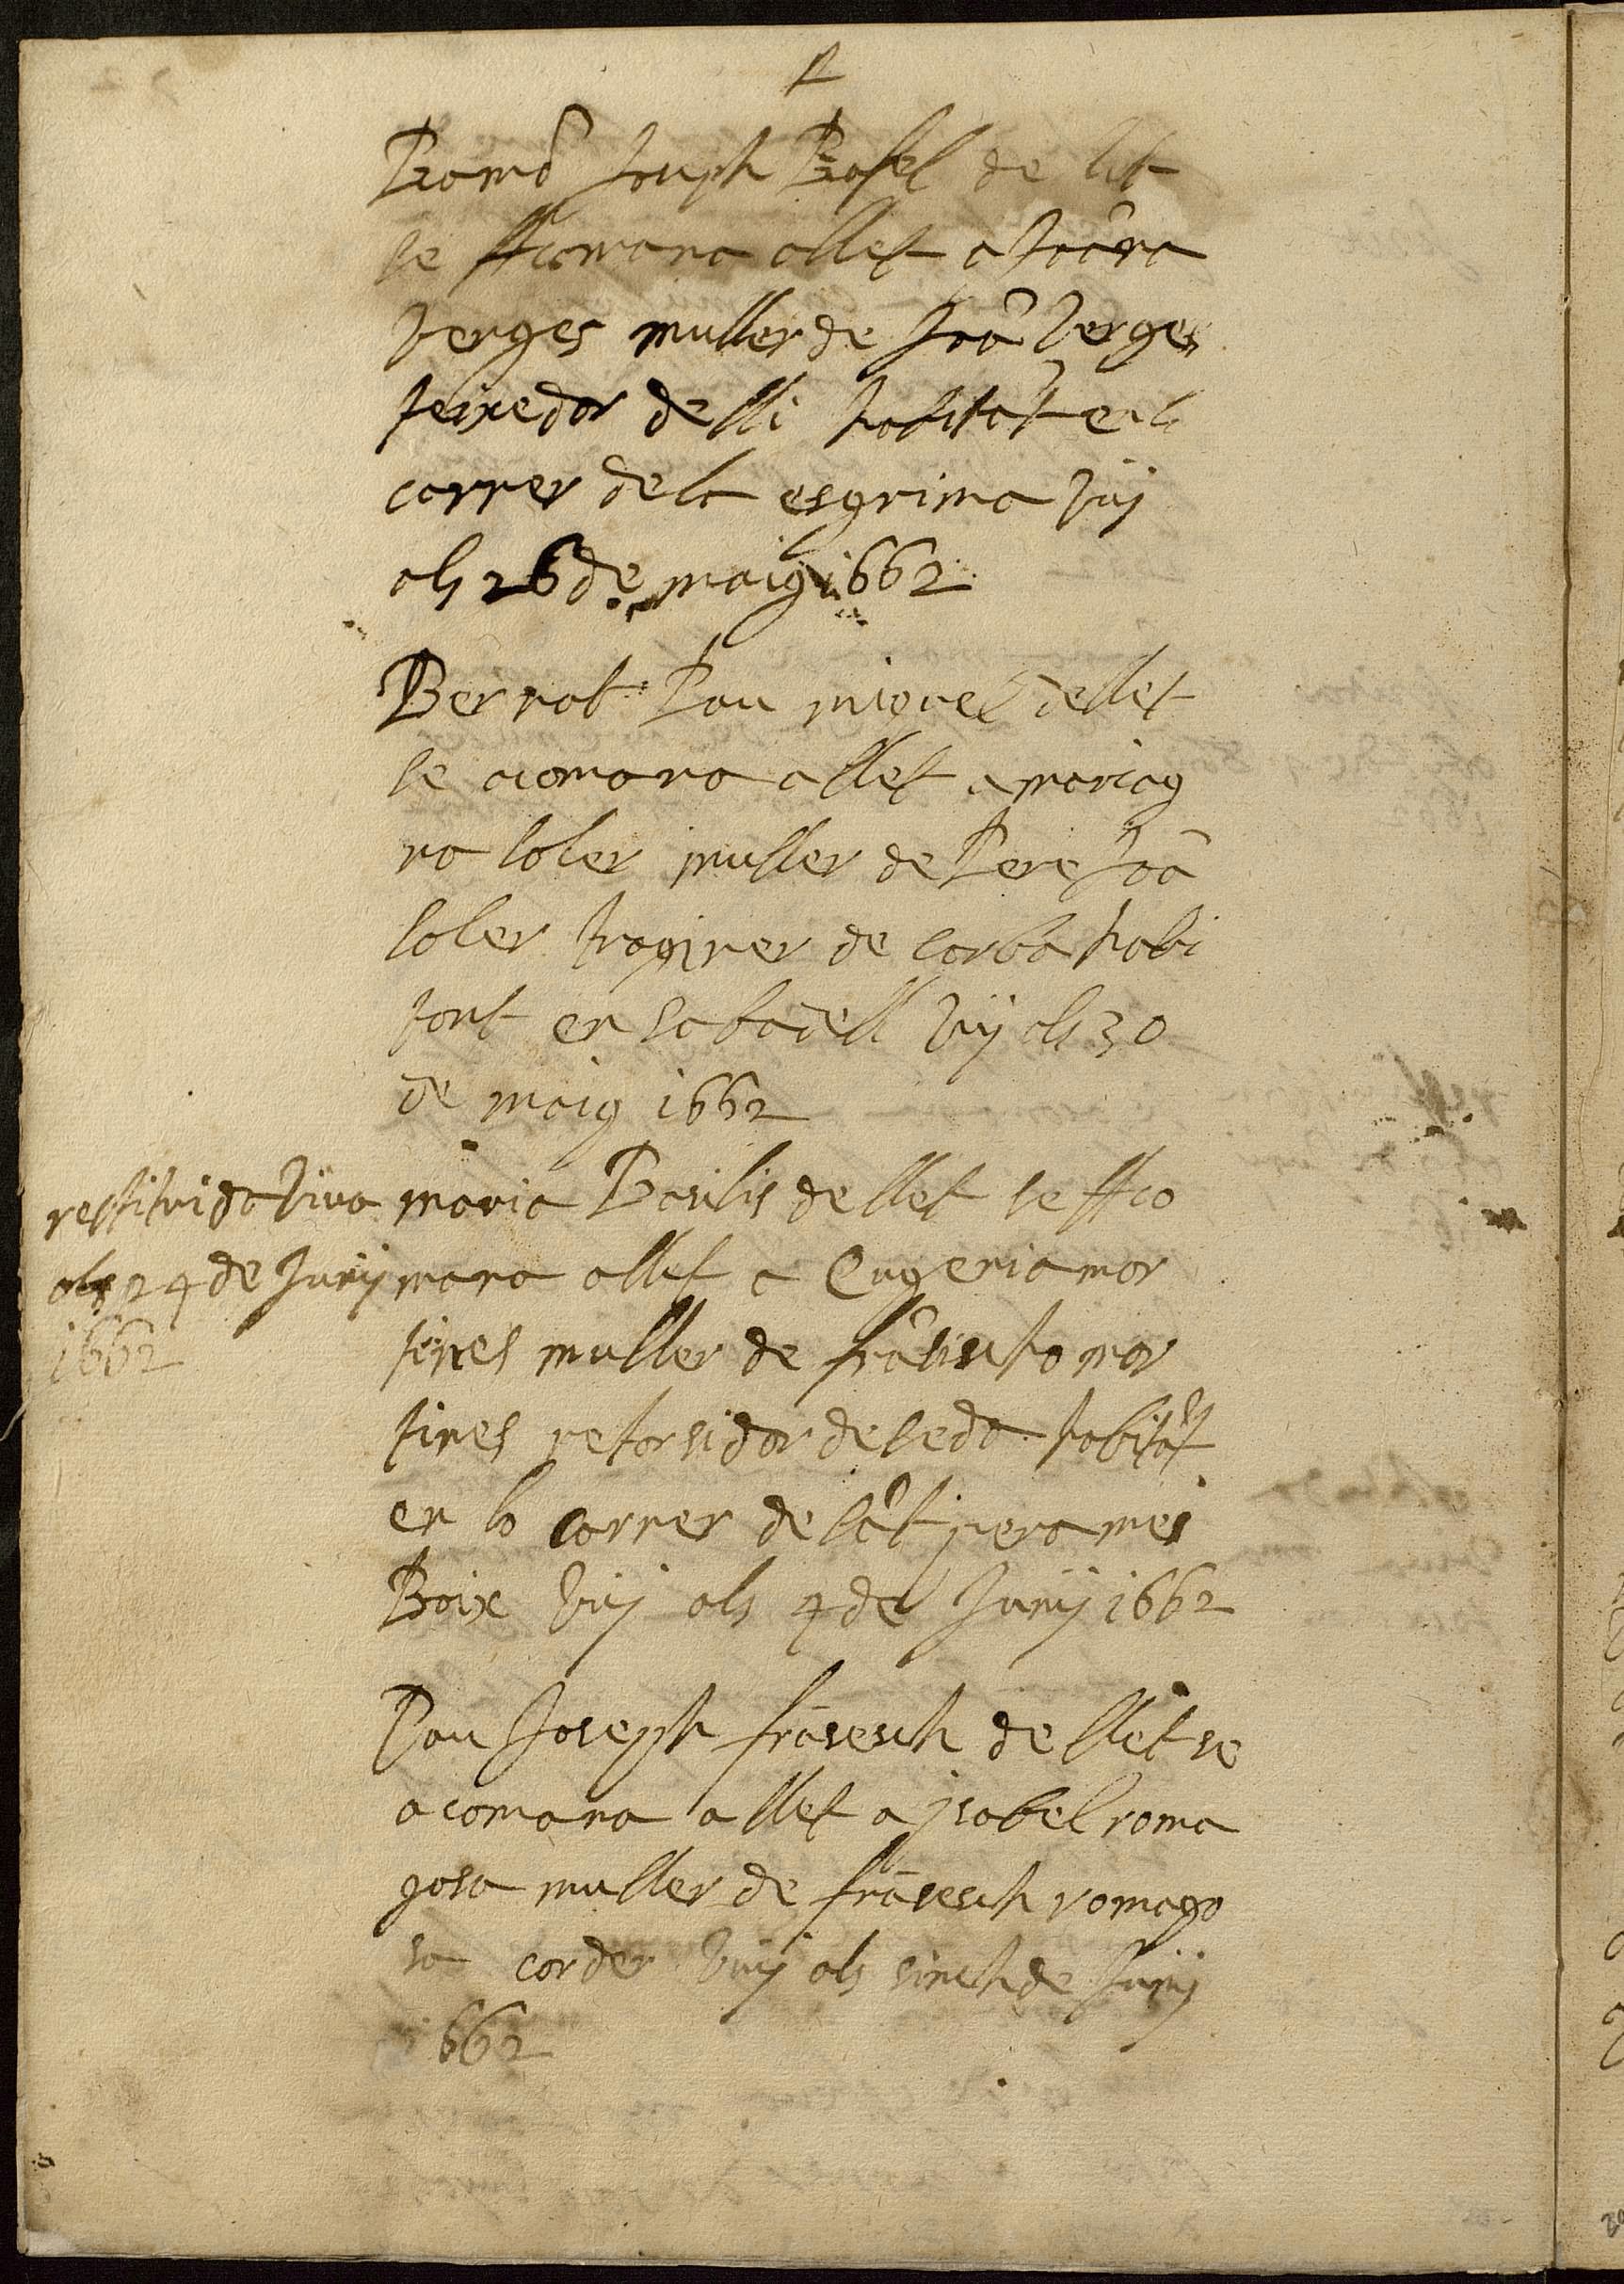 Ramō Joseph Rafel de llet
se acomana allet a Joāna
Verges muller de Joā Verges
teixedor de lli habitāt en lo
carrer de la esgrima vuy
als 26 de maig 1662
Bernat Pau miquel de llet
se acomana a llet a mariag
na soler muller de Pere Joā
soler traginer de corba habi
tant en sabadell vuy als 30
de maig 1662
restituida viva
als 24 de Juny
1662
maria Basilis de llet se aco
mana allet a Eugenia mar
tines muller de frāsischo mar
tines retorsidor de seda habitāt
en lo carrer de sāt pera mes
Baix vuy als 4 de Juny 1662
Pau Joseph frāsesch de llet se
acomana a llet a jsabel roma
gosa muller de frāsesch romago
sa corder vuy als sinch de Juny
1662